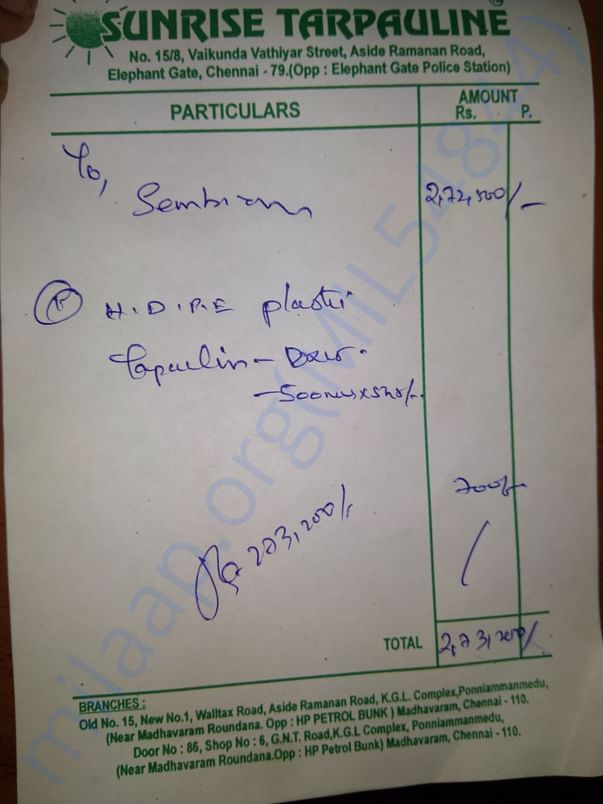 SUNRISE TARPAULINE
No. 15/8, Vaikunda Vathiyar Street, Aside Ramanan Road,
Elephant Gate, Chennai - 79.(Opp : Elephant Gate Police Station)
PARTICULARS AMOUNT
Rs. P.
To,
2,72,500/-
H.D.P.E
700/-
273,200/-
TOTAL 2,73,200/-
BRANCHES :
Old No. 15, New No.1, Walltax Road, Aside Ramanan Road, K.G.L. Complex,Ponniammanmedu,
(Near Madhavaram Roundana. Opp : HP PETROL BUNK ) Madhavaram, Chennai - 110.
Door No : 86, Shop No : 6, G.N.T. Road,K.G.L Complex, Ponniammanmedu,
(Near Madhavaram Roundana.Opp : HP Petrol Bunk) Madhavaram, Chennai - 110.